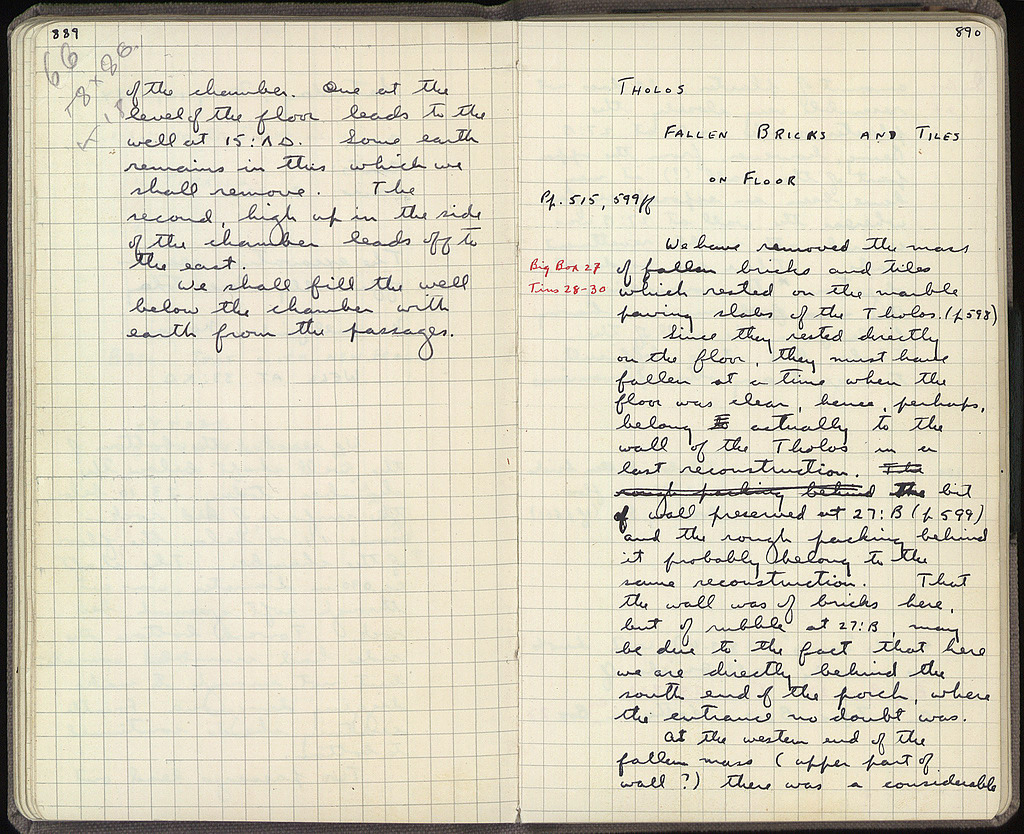 889
66
78 x 86.
of the chamber. One at the
level of the floor leads to the
well at 15:ΛΔ. Some earth
remains in this which we
shall remove. The
second, high up in the side
of the chamber leads off to
the east.
We shall fill the well
below the chamber with
earth from the passages.
890
Tholos
Fallen Bricks and Tiles
on Floor
Pp. 515, 599ff
We have removed the mass
Big Box 27
of fallen bricks and tiles
Tins 28-30
which rested on the marble
paving slabs of the Tholos. (p 598)
Since they rested directly
on the floor, they must have
fallen at a time when the
floor was clear, hence, perhaps,
belong to actually to the
wall of the Tholos in a
last reconstruction. The
rough packing behind the bit
of wall preserved at 27:B (p 599)
and the rough packing behind
it probably belong to the
same reconstruction. That
the wall was of bricks here,
but of rubble at 27:B, may
be due to the fact that here
we are directly behind the
south end of the porch, where
the entrance no doubt was.
At the western end of the
fallen mass (upper part of
wall?) there was a considerable